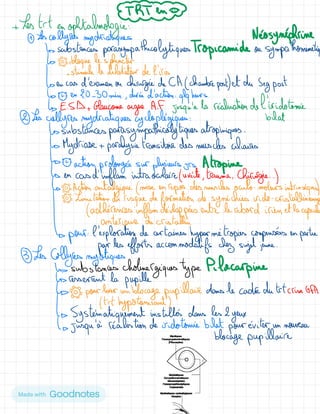 TRT en O
+ Les trt en ophtalmologie:
① Les collyres mydriatiques Néosynéphrine
↳ substances parasympatholytiques Tropicamide ou sympathomimétiq
bloque le sphincter
stimule le dilatateur de l'iris
↳ en cas d'examen ou chirurgie de CA (chambre post) et du Sig post
20-30 min, durée d'action qlq heures
↳ ESD, Glaucome aigu AF jusqu'à la réalisation de l'iridotomie
bilat
② Les collyres mydriatiques cycloplégiques:
↳ substances parasympatholytiques atropiniques.
↳ Mydriase + paralysie transitoire des muscles ciliaires
↳ action prolongée sur plusieurs jrs Atropine
↳ en cas d'inflam intraoculaire (uvéite, trauma, chirurgie)
Action antalgique (mise en repos des muscles intrinsèques)
Limitation du risque de formation de synéchies irido-cristalliniennes
(adhérences inflam développées entre le rebord irien et la capsule
antérieure du cristallin)
↳ pour l'exploration de certaines hypermétropies compensées en partie
par les efforts accommodatifs chez sujet jeune.
③ Les Collyres myotiques
↳ substances cholinergiques type Pilocarpine
↳ resserrent la pupille
↳ pour lever un blocage pupillaire dans le cadre du trt crise GFA
(trt hypotonisant)
↳ Systématiquement instillés dans les 2 yeux
↳ jusqu'à réalisation de iridotomie bilat pour éviter un nouveau
blocage pupillaire
Made with Goodnotes